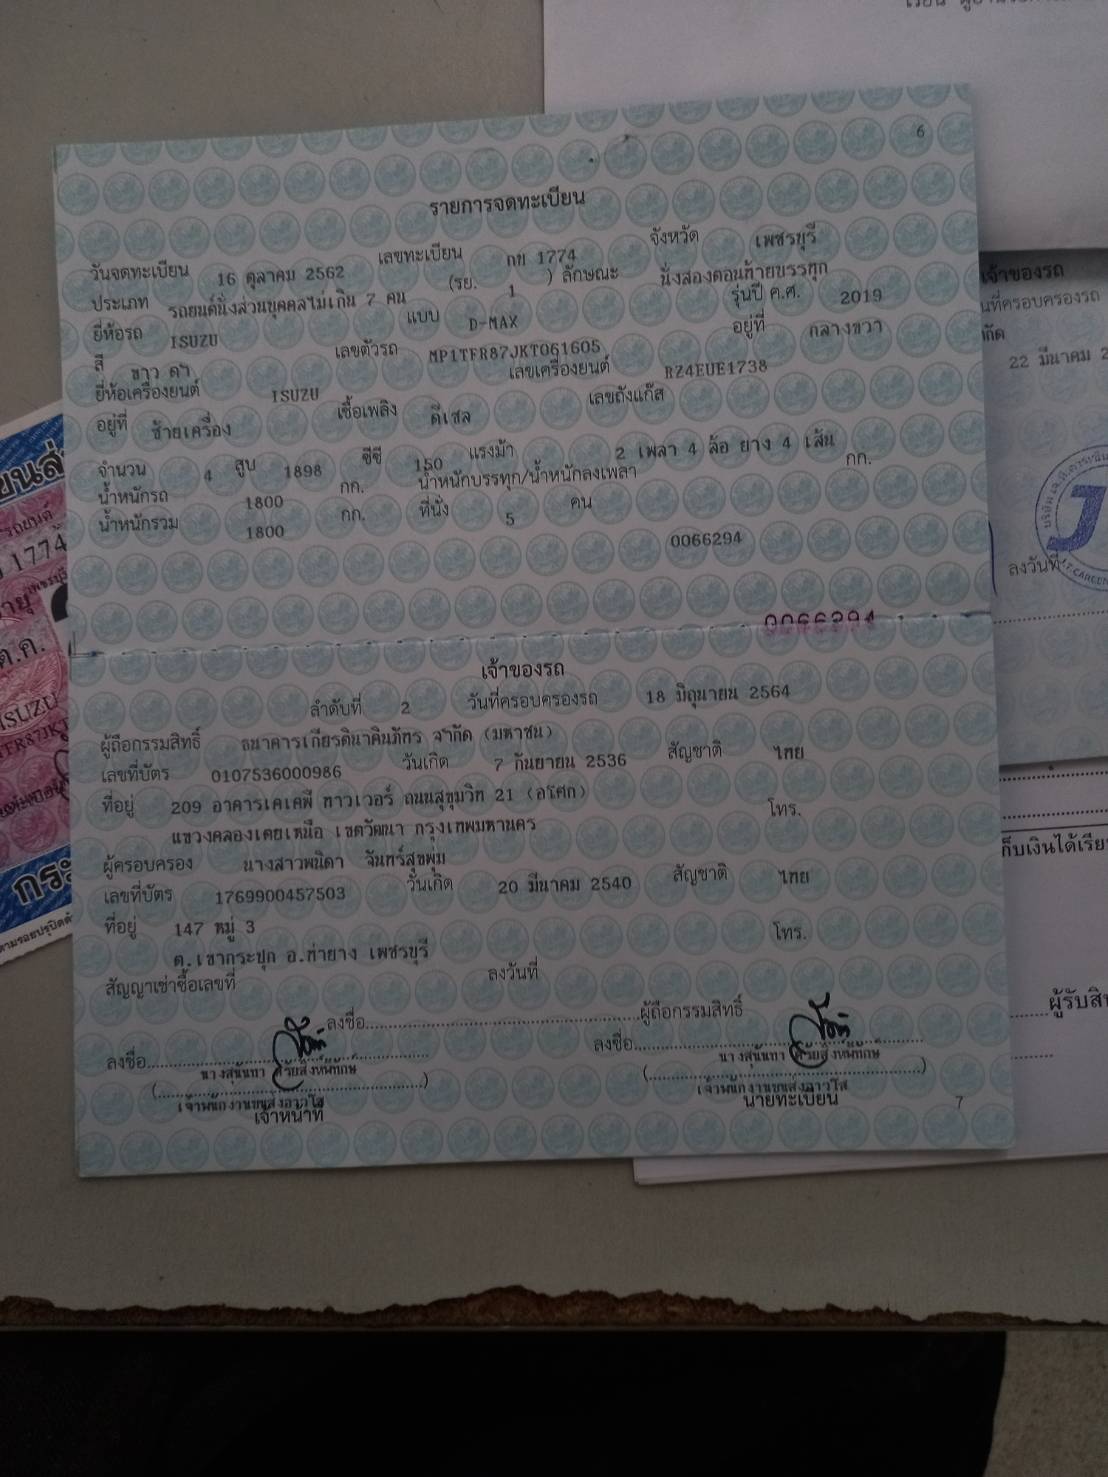 เรียน
6
รายการจดทะเบียน
วันจดทะเบียน 16 ตุลาคม 2562 เลขทะเบียน กท 1774 จังหวัด เพชรบุรี
ประเภท รถยนต์นั่งส่วนบุคคลไม่เกิน 7 คน (รย. 1 ) ลักษณะ นั่งสองตอนท้ายบรรทุก
ยี่ห้อรถ ISUZU แบบ D-MAX รุ่นปี ค.ศ. 2019
สี ขาว ดำ เลขตัวรถ MP1TFR87JKT061605 อยู่ที่ กลางขวา
ยี่ห้อเครื่องยนต์ ISUZU เลขเครื่องยนต์ RZ4EUE1738
อยู่ที่ ซ้ายเครื่อง เชื้อเพลิง ดีเซล เลขถังแก๊ส
จำนวน 4 สูบ 1898 ซีซี 150 แรงม้า 2 เพลา 4 ล้อ ยาง 4 เส้น
น้ำหนักรถ 1800 กก. น้ำหนักบรรทุก/น้ำหนักลงเพลา กก.
น้ำหนักรวม 1800 กก. ที่นั่ง 5 คน
0066294
0066294
เจ้าของรถ
ลำดับที่ 2 วันที่ครอบครองรถ 18 มิถุนายน 2564
ผู้ถือกรรมสิทธิ์ ธนาคารเกียรตินาคินภัทร จำกัด (มหาชน)
เลขที่บัตร 0107536000986 วันเกิด 7 กันยายน 2536 สัญชาติ ไทย
ที่อยู่ 209 อาคารเคเคพี ทาวเวอร์ ถนนสุขุมวิท 21 (อโศก) โทร.
แขวงคลองเตยเหนือ เขตวัฒนา กรุงเทพมหานคร
ผู้ครอบครอง นางสาวพนิดา จันทร์สุขพุ่ม
เลขที่บัตร 1769900457503 วันเกิด 20 มีนาคม 2540 สัญชาติ ไทย
ที่อยู่ 147 หมู่ 3 โทร.
ต.เขากระปุก อ.ท่ายาง เพชรบุรี
สัญญาเช่าซื้อเลขที่ ลงวันที่
ลงชื่อ ผู้ถือกรรมสิทธิ์
ลงชื่อ ลงชื่อ
นางสุนันทา นางสุนันทา
เจ้าพนักงานขนส่งอาวุโส เจ้าพนักงานขนส่งอาวุโส
เจ้าหน้าที่ นายทะเบียน
7
1774
ต.ค.
ISUZU
เจ้าของรถ
22 มีนาคม
ลงวันที่